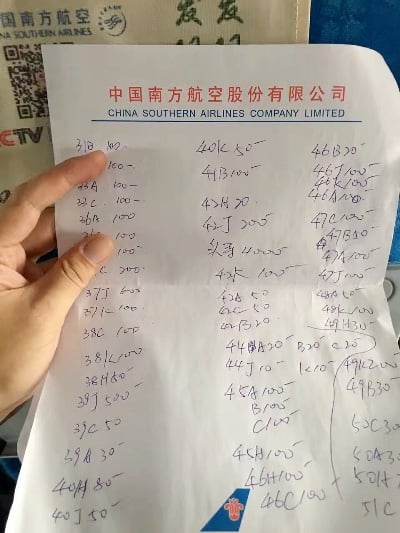 国南方航空
NA SOUTHERN AIRLINES
CTV
中国南方航空股份有限公司
CHINA SOUTHERN AIRLINES COMPANY LIMITED
100-
100-
33A 100-
33C 100
36A 100
100
100-
C 200
37J 600
37K 100
38C 100
38K100
38H50-
39J 500-
39C 50
39A 30-
40H 80-
40J 50-
40K 50-
41B100-
42H 20
42J 200-
头等4000
42K 100-
42A 50
42C 50
42B20
44A20- B20- C20-
44J10- K10-
45A100-
B100-
C100-
45H100-
46H100-
46C100
46B20-
46J100-
46K100-
46A100-
47C100-
47B50-
47A100-
47J100-
48A50-
48K100
49H30-
49K200-
49B30
50C30
50A30
50H
51C